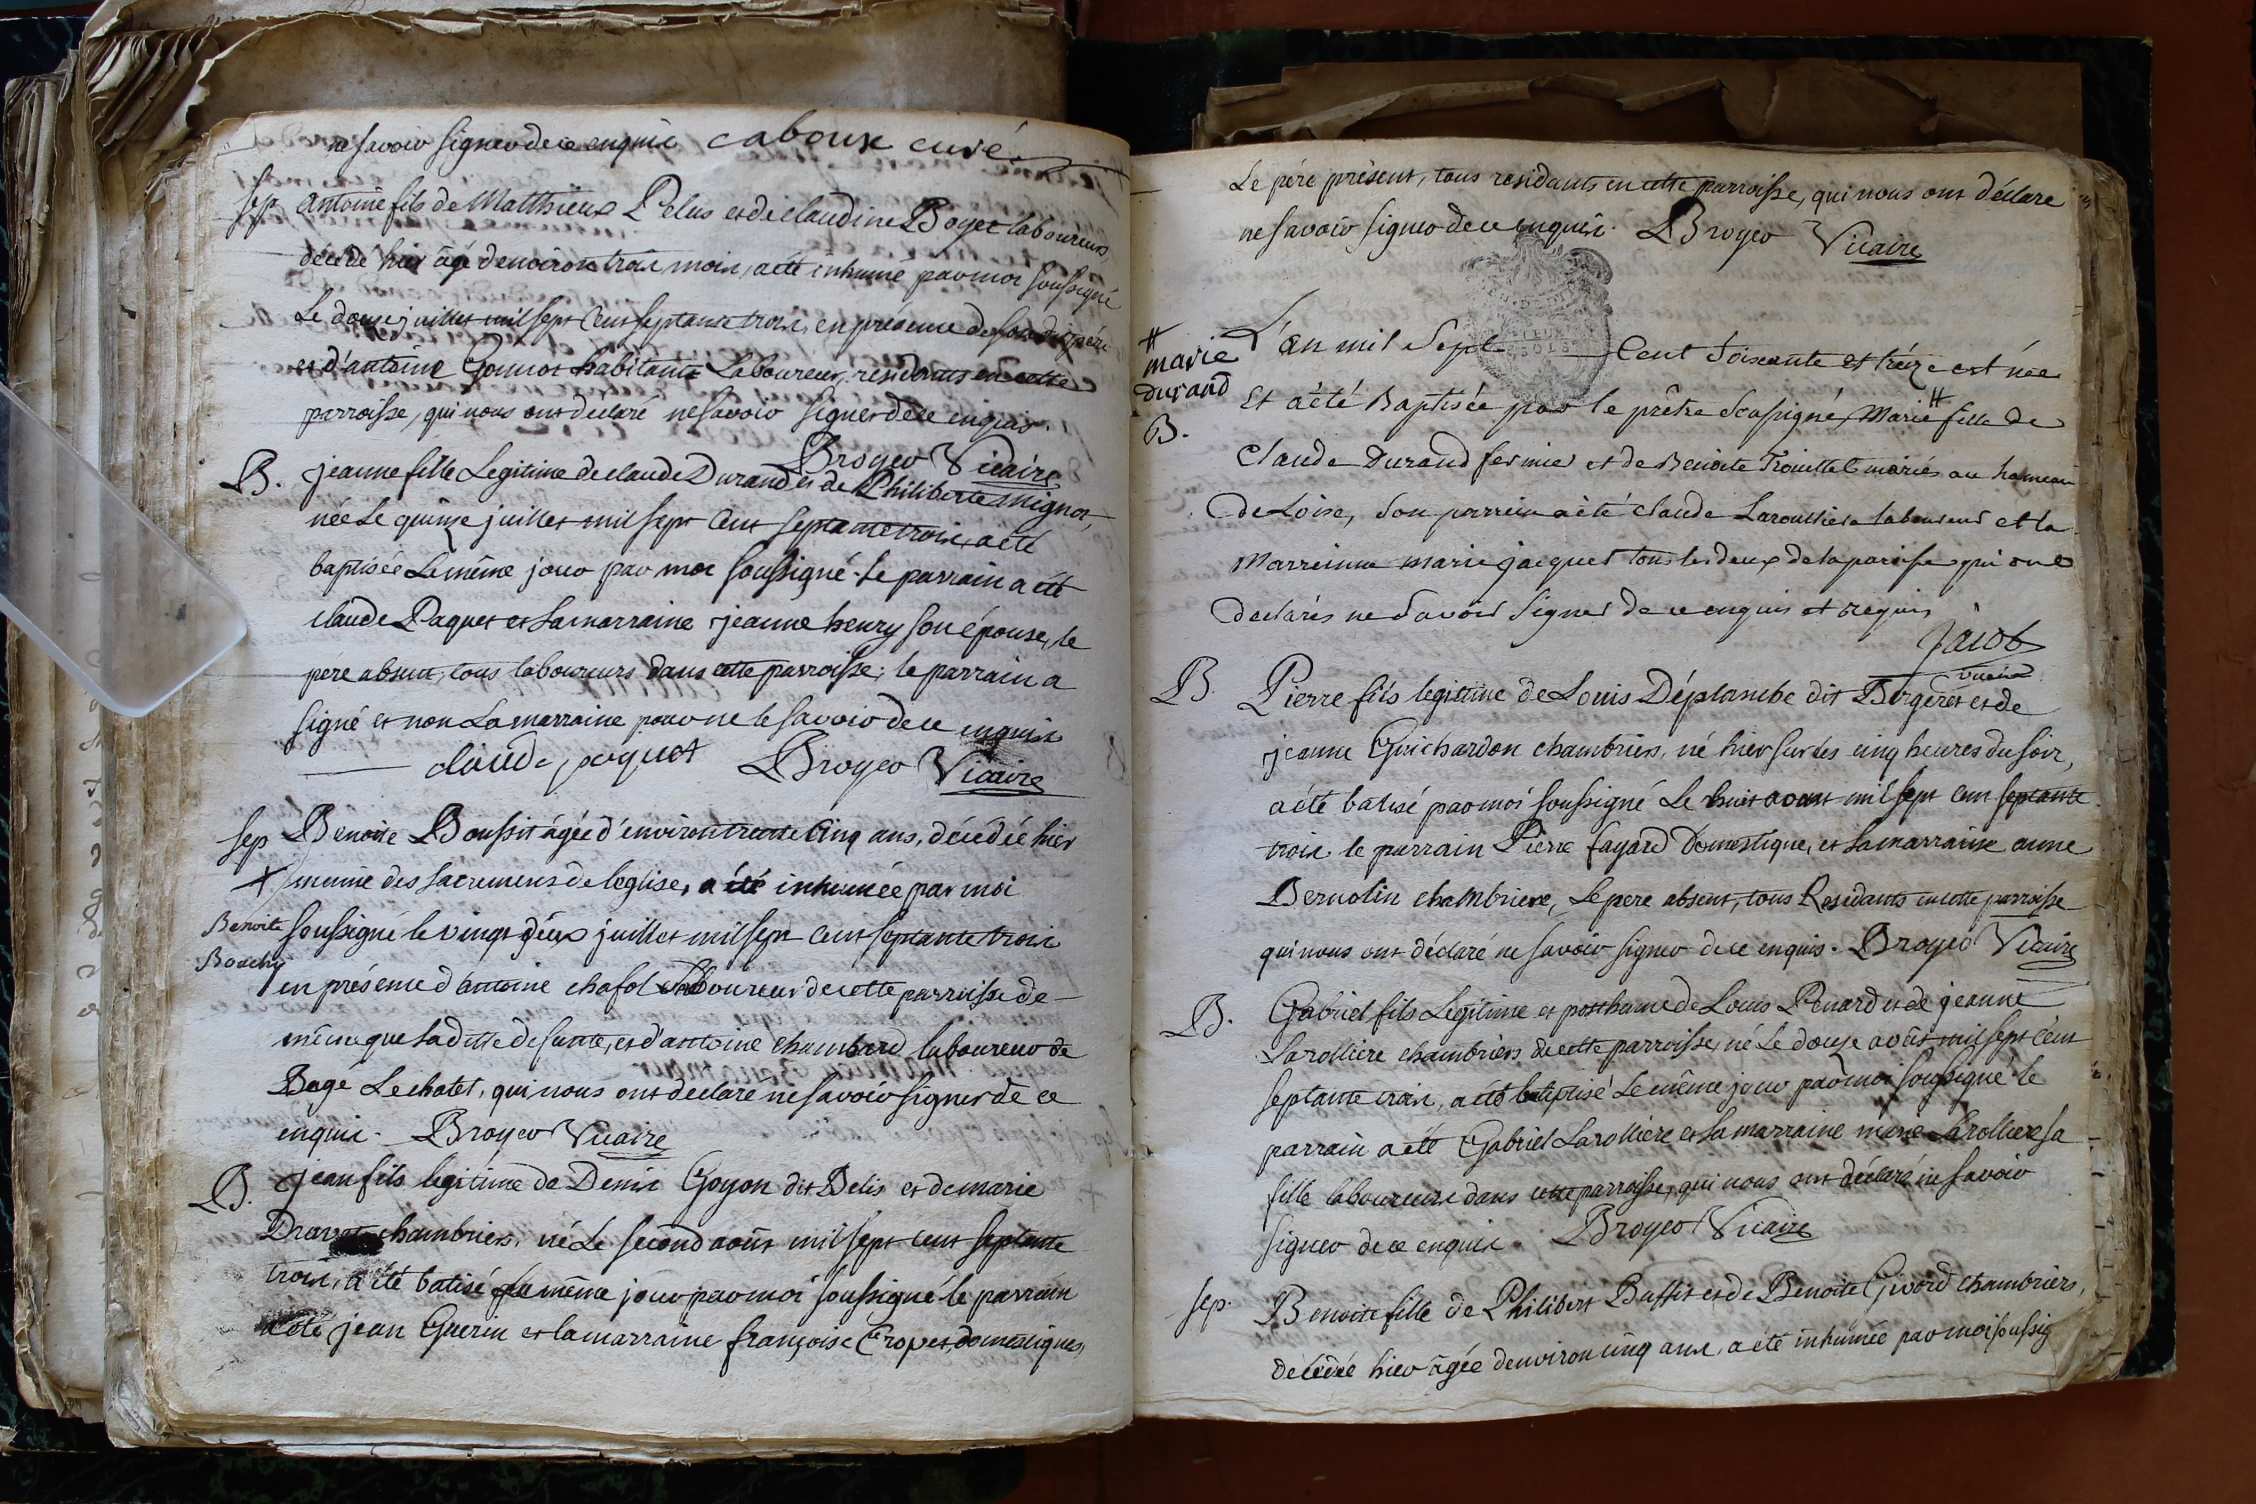 ne savoir signer de ce enquis caboux curé
sep antoine fils de Matthieux Pelus et de claudine Boyer laboureurs,
décédé hier âgé d'environ trois mois, a été inhumé par moi soussigné
Le douze juillet mil sept cent septante trois, en présence de son dit père
et d'antoine Gonnot habitants Laboureurs, residents en cette
parroisse, qui nous ont declaré ne savoir signer de ce enquis.
Broyer Vicaire
B. jeanne fille Legitime de claude Durand et de Philiberte Mignot,
née Le quinze juillet mil sept cent septante trois, a été
baptisée Le même jour par moi soussigné. le parrain a été
claude Paquet et La marraine jeanne henry son épouse, le
père absent, tous laboureurs dans cette parroisse; le parrain a
signé et non La marraine pour ne le savoir de ce enquis
claude paquet Broyer Vicaire
sep Benoite Boussit âgée d'environ trente Cinq ans, décédée hier
munie des sacremens de l'eglise, a été inhumée par moi
Benoite soussigné le vingt déux juillet mil sept cent septante trois
en présence d'antoine chafol Laboureur de cette parroisse de
même que La ditte defunte, et d'antoine chambard laboureur de
Bagé Le chatel, qui nous ont declaré ne savoir signer de ce
enquis. Broyer Vicaire
B. jean fils legitime de Denis Goyon dit Delis et de marie
chambriers, né Le second août mil sept cent septante
trois, a été batisé Le même jour par moi soussigné le parrain
a été jean Guerin et la marraine françoise domestiques,
Le père présent, tous residants en cette parroisse, qui nous ont déclaré
ne savoir signer de ce enquis. Broyer Vicaire
marie L'an mil Sept Cent Soixante et tréize est née
durand Et a été Baptisée par le prêtre Soussigné, Marie fille de
B. Claude Durand fermier et de Benoite Trouillet mariés au hameau
de Loise, Son parrein a été claude Laroulliere laboureur et la
Marreinne marie jacquet tous les deux de la parisse qui ont
declarés ne Savoir Signer de ce enquis et requis
Jacob
vicaire
B. Pierre fils legitime de Louis Déplanche dit Bergeret et de
jeanne Guichardon chambriers, né hier sur les cinq heures du soir,
a été batisé par moi soussigné Le huit aoust mil sept cent septante
trois. le parrain Pierre fayard Domestique, et La marraine anne
Bernolin chambriere, Le pere absent, tous Residants en cette parroisse
qui nous ont déclaré ne savoir signer de ce enquis. Broyer Vicaire
B. Gabriel fils Legitime et posthume de Louis Penard et de jeanne
Larolliere chambriers de cette parroisse, né Le douze août mil sept cent
septante trois, a été baptisé Le même jour par moi soussigné. le
parrain a été Gabriel Larolliere et La marraine marie Larolliere sa
fille laboureurs dans cette parroisse, qui nous ont déclaré ne savoir
signer de ce enquis. Broyer Vicaire
sep. Benoite fille de Philibert Buffit et de Benoite Givord chambriers,
décédée hier âgée d'environ cinq ans, a été inhumée par moi soussig